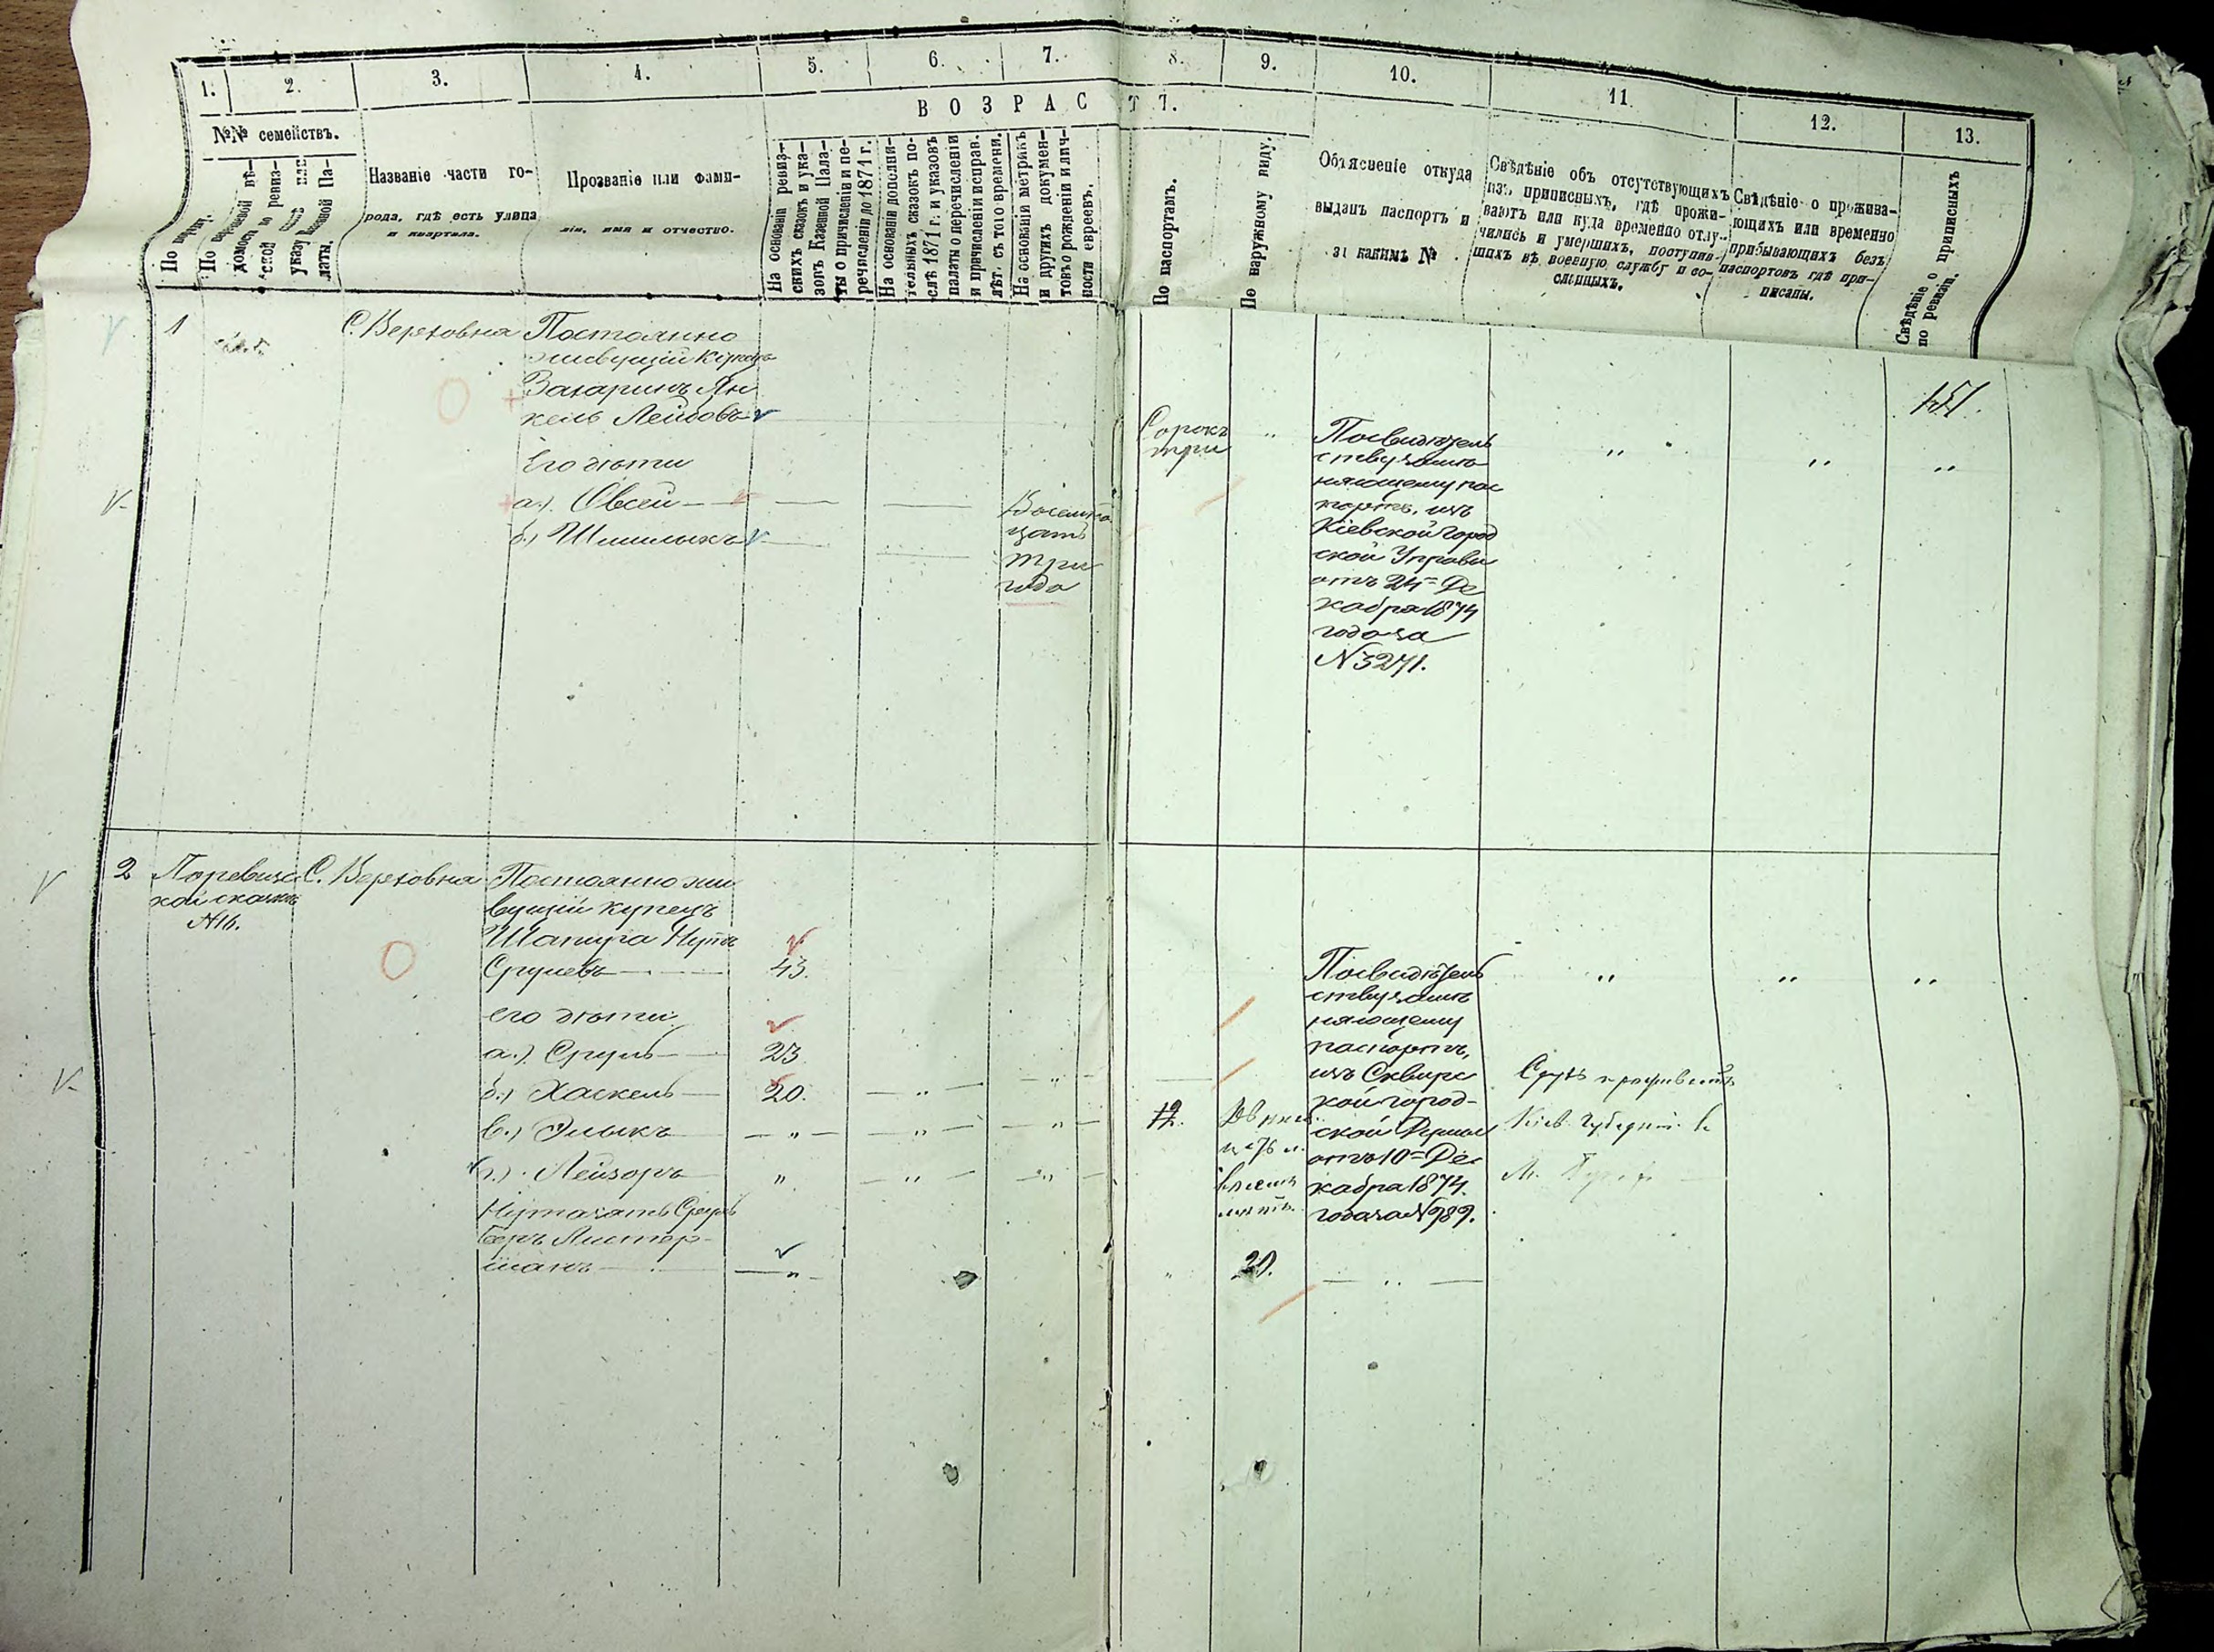 1.
2.
3.
4.
5.
6.
7.
8.
9.
10.
11.
12.
13.
ВОЗРАСТЪ.
№№ семействъ.
По поряд.
По
домости
ской
указу Казенной Па-
латы.
Названіе части го-
рода, гдѣ есть улица
и квартала.
Прозваніе или фами-
лія, имя и отчество.
На основаніи ревиз-
скихъ сказокъ и ука-
зовъ Казенной Пала-
ты о причисленіи и пе-
речисленіи до 1871 г.
На основаніи дополни-
тельныхъ сказокъ по-
слѣ 1871 г. и указовъ
палаты о перечисленіи
и причисленіи исправ.
лѣт. съ того времени.
На основаніи метрикъ
и другихъ докумен-
товъ о рожденіи и лич-
ности евреевъ.
По паспортамъ.
По наружному виду.
Объясненіе откуда
выданъ паспортъ и
за какимъ №
Свѣдѣніе об отсутствующихъ
изъ приписныхъ, гдѣ прожи-
ваютъ или куда временно отлу-
чились и умершихъ, поступив-
шихъ въ военную службу и со-
сланныхъ.
Свѣдѣніе о прожива-
ющихъ или временно
прибывающихъ безъ
паспортовъ гдѣ при-
писаны.
Свѣдѣніе о приписныхъ
по ревизіи.
1
С. Верховна
Постоянно
живущій купецъ
Захаринъ Ян
кель Лейбовъ
Его дѣти
а.) Овсей
б.) Шмилыкъ
Восемнад
цать
три
года
Сорокъ
три
"
Посвидѣтель
ству замѣ
няющему пас
портъ, изъ
Кіевской город
ской Управы
отъ 24 Де
кабря 1874
года за
N 3271.
"
"
"
151.
2
По ревизс
кой сказкѣ
N 16.
С. Верховна
Постоянно жи
вущій купецъ
Шапира Нута
Срулевъ
43.
его дѣти
а.) Сруль
23
б.) Хаскель
20.
в.) Элыкъ
г.) Лейзоръ
Нутазять Сруль
Беръ Листер-
манъ
12.
20.
Посвидѣтель
ству замѣ
няющему
паспортъ,
изъ Сквирс
кой город-
ской Думы
отъ 10 Де
кабря 1874
года за N 989.
"
"
"
Сруль проживаетъ
Кіев. Губерніи в
М.